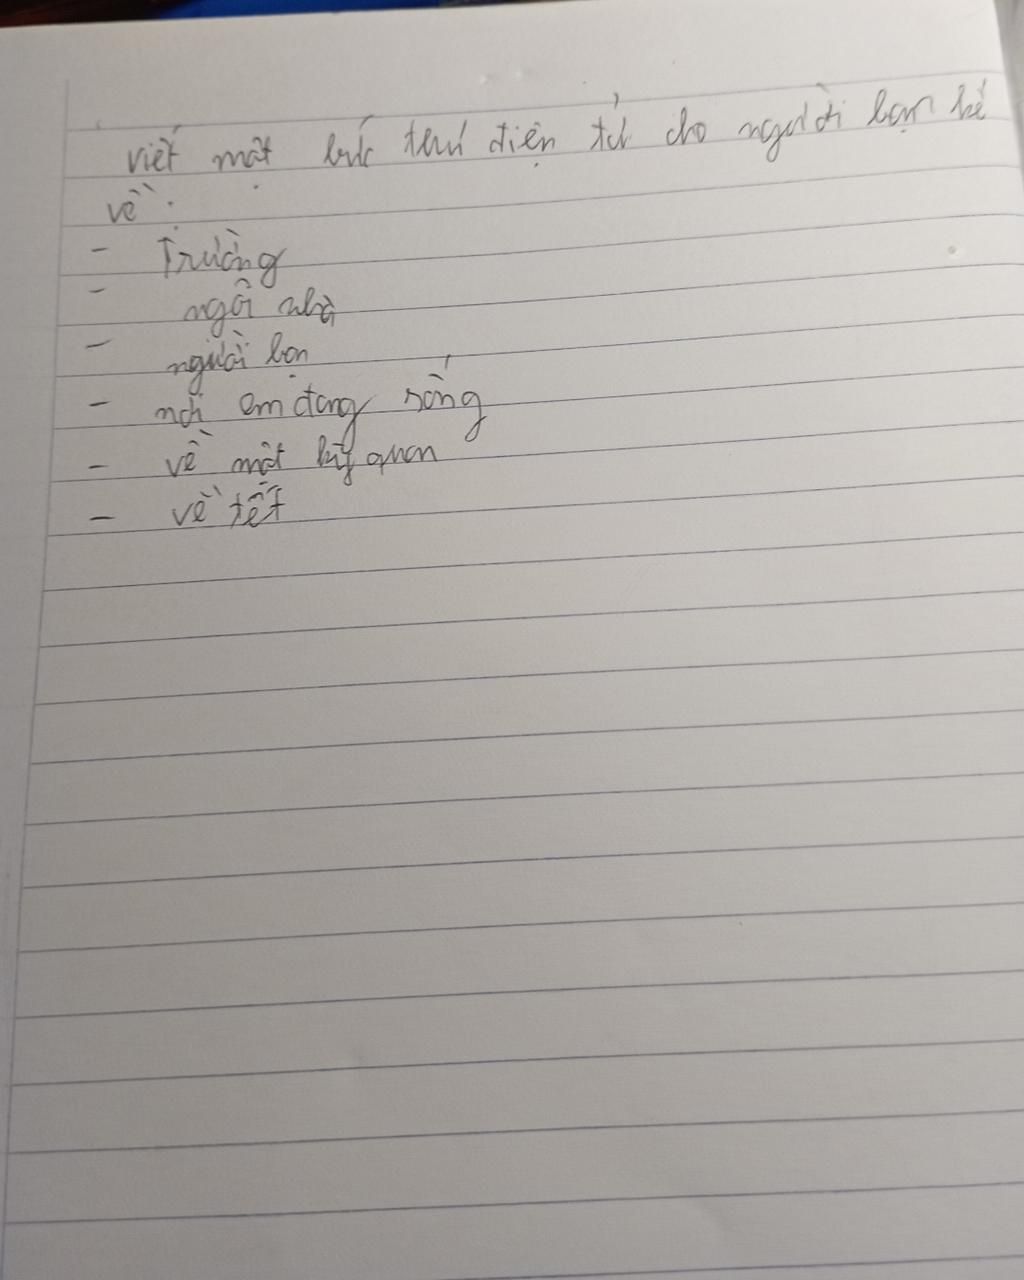 viết một bức thư điện tử cho người bạn kể
về:
- Trường
- ngôi nhà
- người bạn
- nơi em đang sống
- về một kỳ quan
- về tết